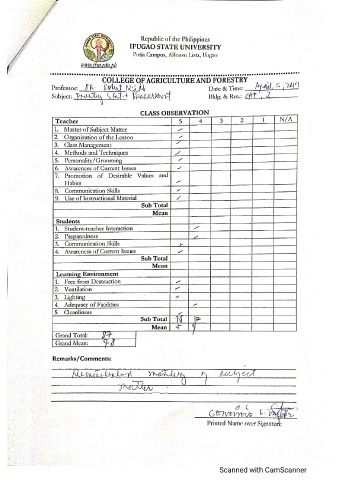 Republic of the Philippines
IFUGAO STATE UNIVERSITY
Potia Campus, Alfonso Lista, Ifugao
www.ifsu.edu.ph
COLLEGE OF AGRICULTURE AND FORESTRY
Professor: Date & Time: April 5, 2019
Subject: Bldg. & Rm.:
CLASS OBSERVATION
Teacher 5 4 3 2 1 N/A
1. Master of Subject Matter ✓
2. Organization of the Lesson ✓
3. Class Management ✓
4. Methods and Techniques ✓
5. Personality/Grooming ✓
6. Awareness of Current Issues ✓
7. Promotion of Desirable Values and
Habits ✓
8. Communication Skills ✓
9. Use of Instructional Material ✓
Sub Total
Mean
Students
1. Student-teacher Interaction ✓
2. Preparedness ✓
3. Communication Skills ✓
4. Awareness of Current Issues ✓
Sub Total
Mean
Learning Environment
1. Free from Destruction ✓
2. Ventilation ✓
3. Lighting ✓
4. Adequacy of Facilities ✓
5. Cleanliness ✓
Sub Total
Mean
Grand Total: 87
Grand Mean: 4.8
Remarks/Comments:
Demonstrated mastery of subject
matter.
Printed Name over Signature
Scanned with CamScanner